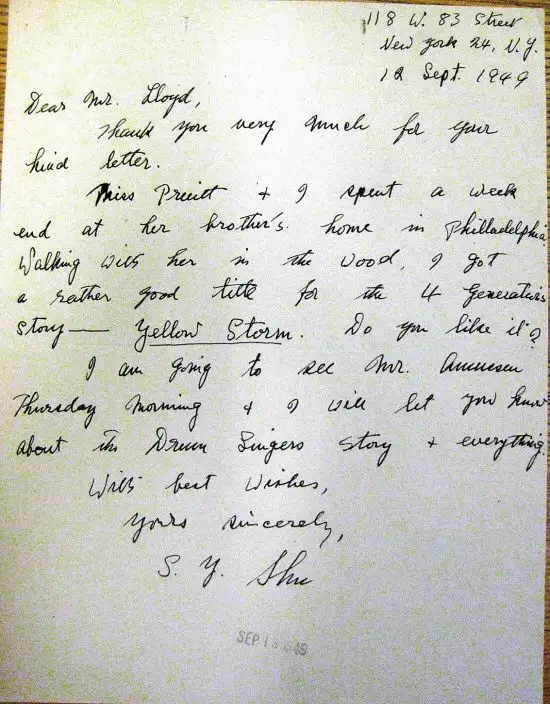 118 W. 83 Street
New York 24, N.Y.
12 Sept. 1949
Dear Mr. Lloyd,
Thank you very much for your
kind letter.
Miss Pruitt & I spent a week
end at her brother's home in Philladelphia.
Walking with her in the wood, I got
a rather good title for the 4 Generations
story — Yellow Storm. Do you like it?
I am going to see Mr.
Thursday morning & I will let you know
about the Drum Singers story & everything.
With best wishes,
Yours sincerely,
S. Y. Shu
SEP 1 1949